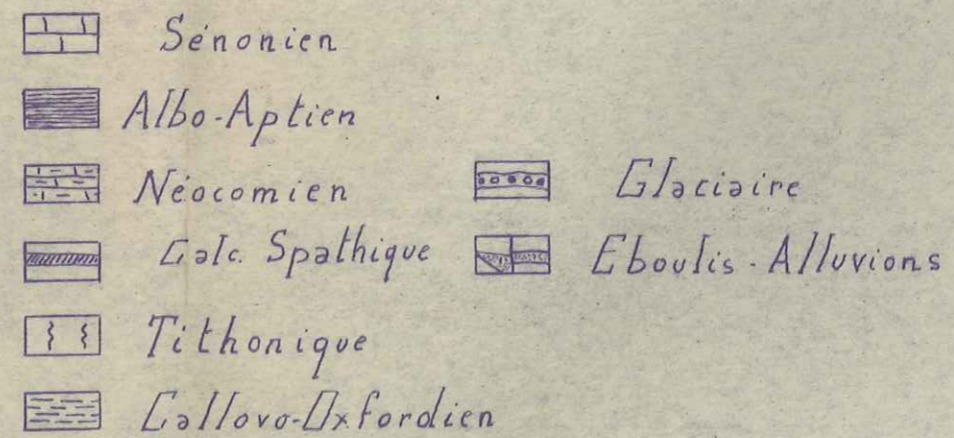 Sénonien
Albo-Aptien
Néocomien
Calc. Spathique
Tithonique
Callovo-Oxfordien
Glaciaire
Eboulis - Alluvions